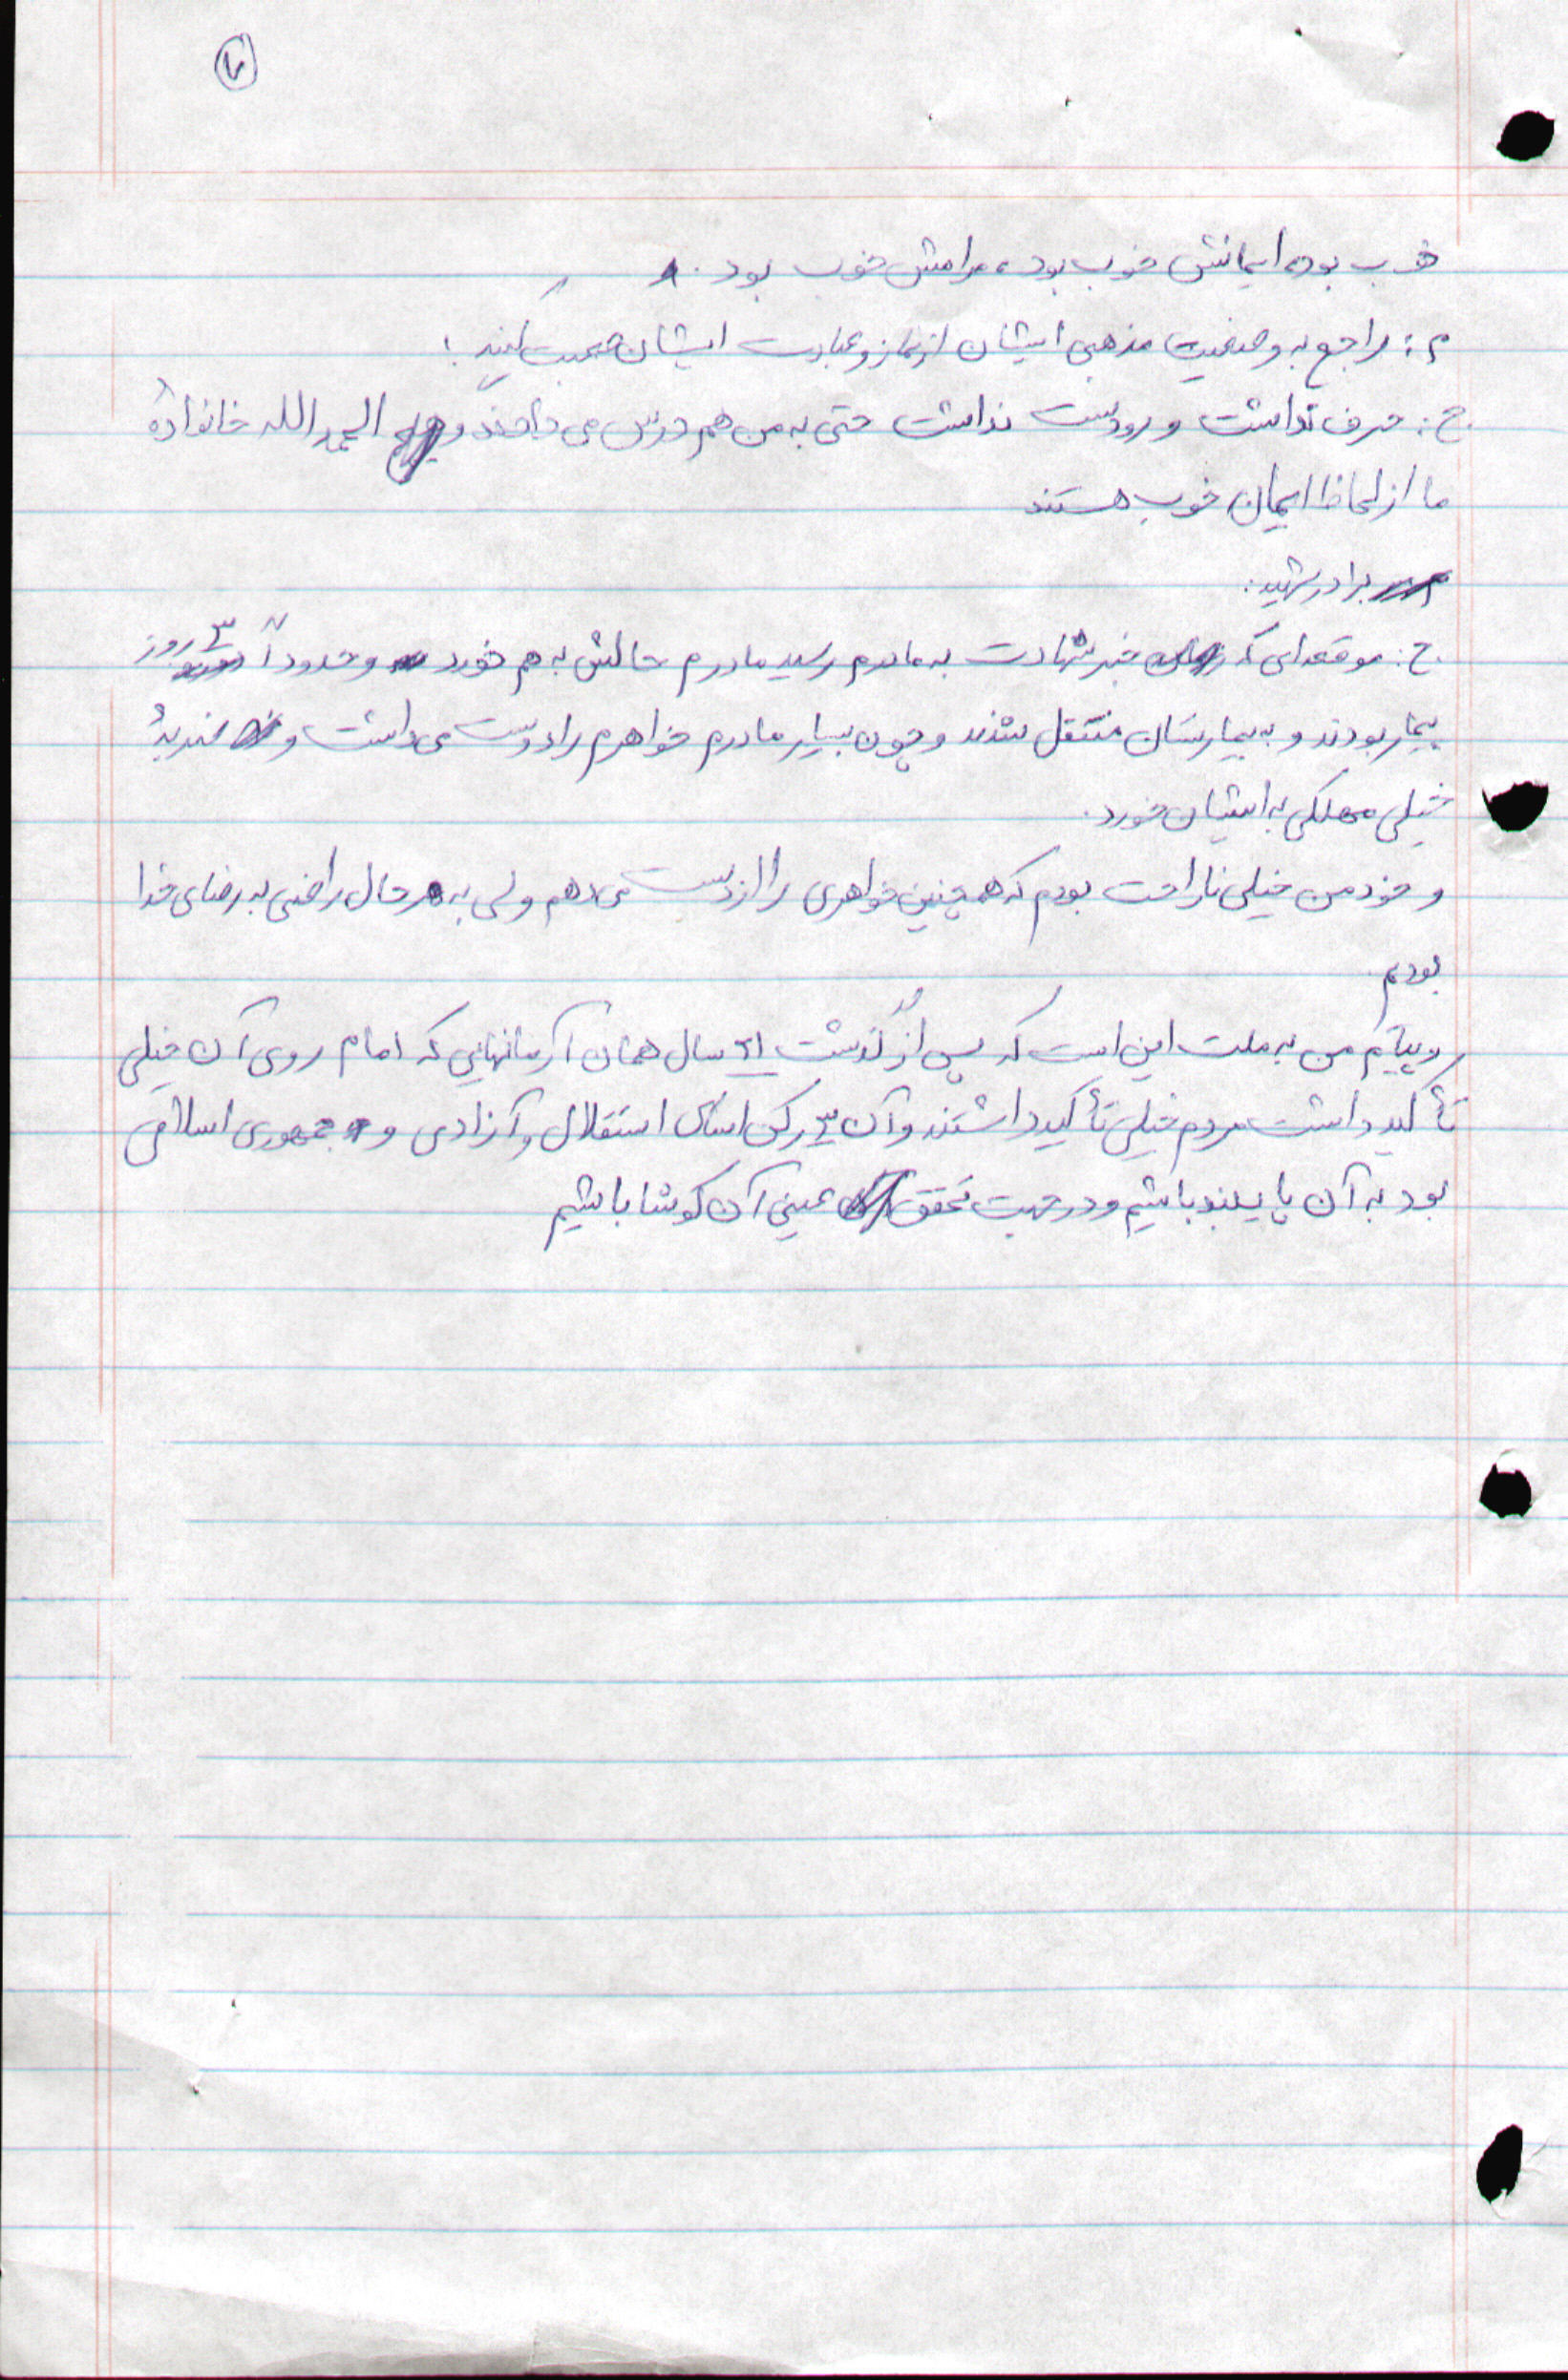 ۷
خوب بوده ایمانش خوب بود، مرامش خوب بود.
م: راجع به وضعیت مذهبی ایشان از نماز و عبادت ایشان صحبت کنید؛
ج: حرف نداشت و رودست نداشت حتی به من هم درس می دادند و الحمدالله خانوادهٔ
ما از لحاظ ایمان خوب هستند
برادر شهید:
ج: موقعه‌ای که خبر شهادت به مادرم رسید مادرم حالش به هم خورد و حدوداً ۳ روز
بیمار بودند و به بیمارستان منتقل شدند و چون بسیار مادرم خواهرم را دوست می داشت و ضربهٔ
خیلی مهلکی به ایشان خورد.
و خود من خیلی ناراحت بودم که همچنین خواهری را از دست می دهم ولی به هر حال راضی به رضای خدا
بودم.
و پیام من به ملت این است که پس از گذشت ۲۱ سال همان آرمانهایی که امام روی آن خیلی
تأکید داشت مردم خیلی تأکید داشتند و آن ۳ رکن اساسی استقلال و آزادی و جمهوری اسلامی
بود به آن پایبند باشیم و در جهت تحقق عینی آن کوشا باشیم